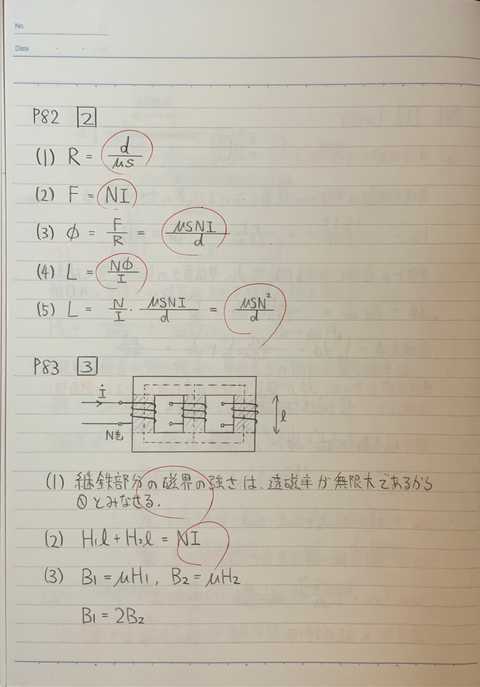 No.
Date
P82 [2]
(1) R = d/μS
(2) F = NI
(3) φ = F/R = μSNI/d
(4) L = Nφ/I
(5) L = N/I · μSNI/d = μSN²/d
P83 [3]
İ
N巻
l
(1) 継鉄部分の磁界の強さは、透磁率が無限大であるから
⓪とみなせる.
(2) H₁l + H₂l = NI
(3) B₁ = μH₁, B₂ = μH₂
B₁ = 2B₂